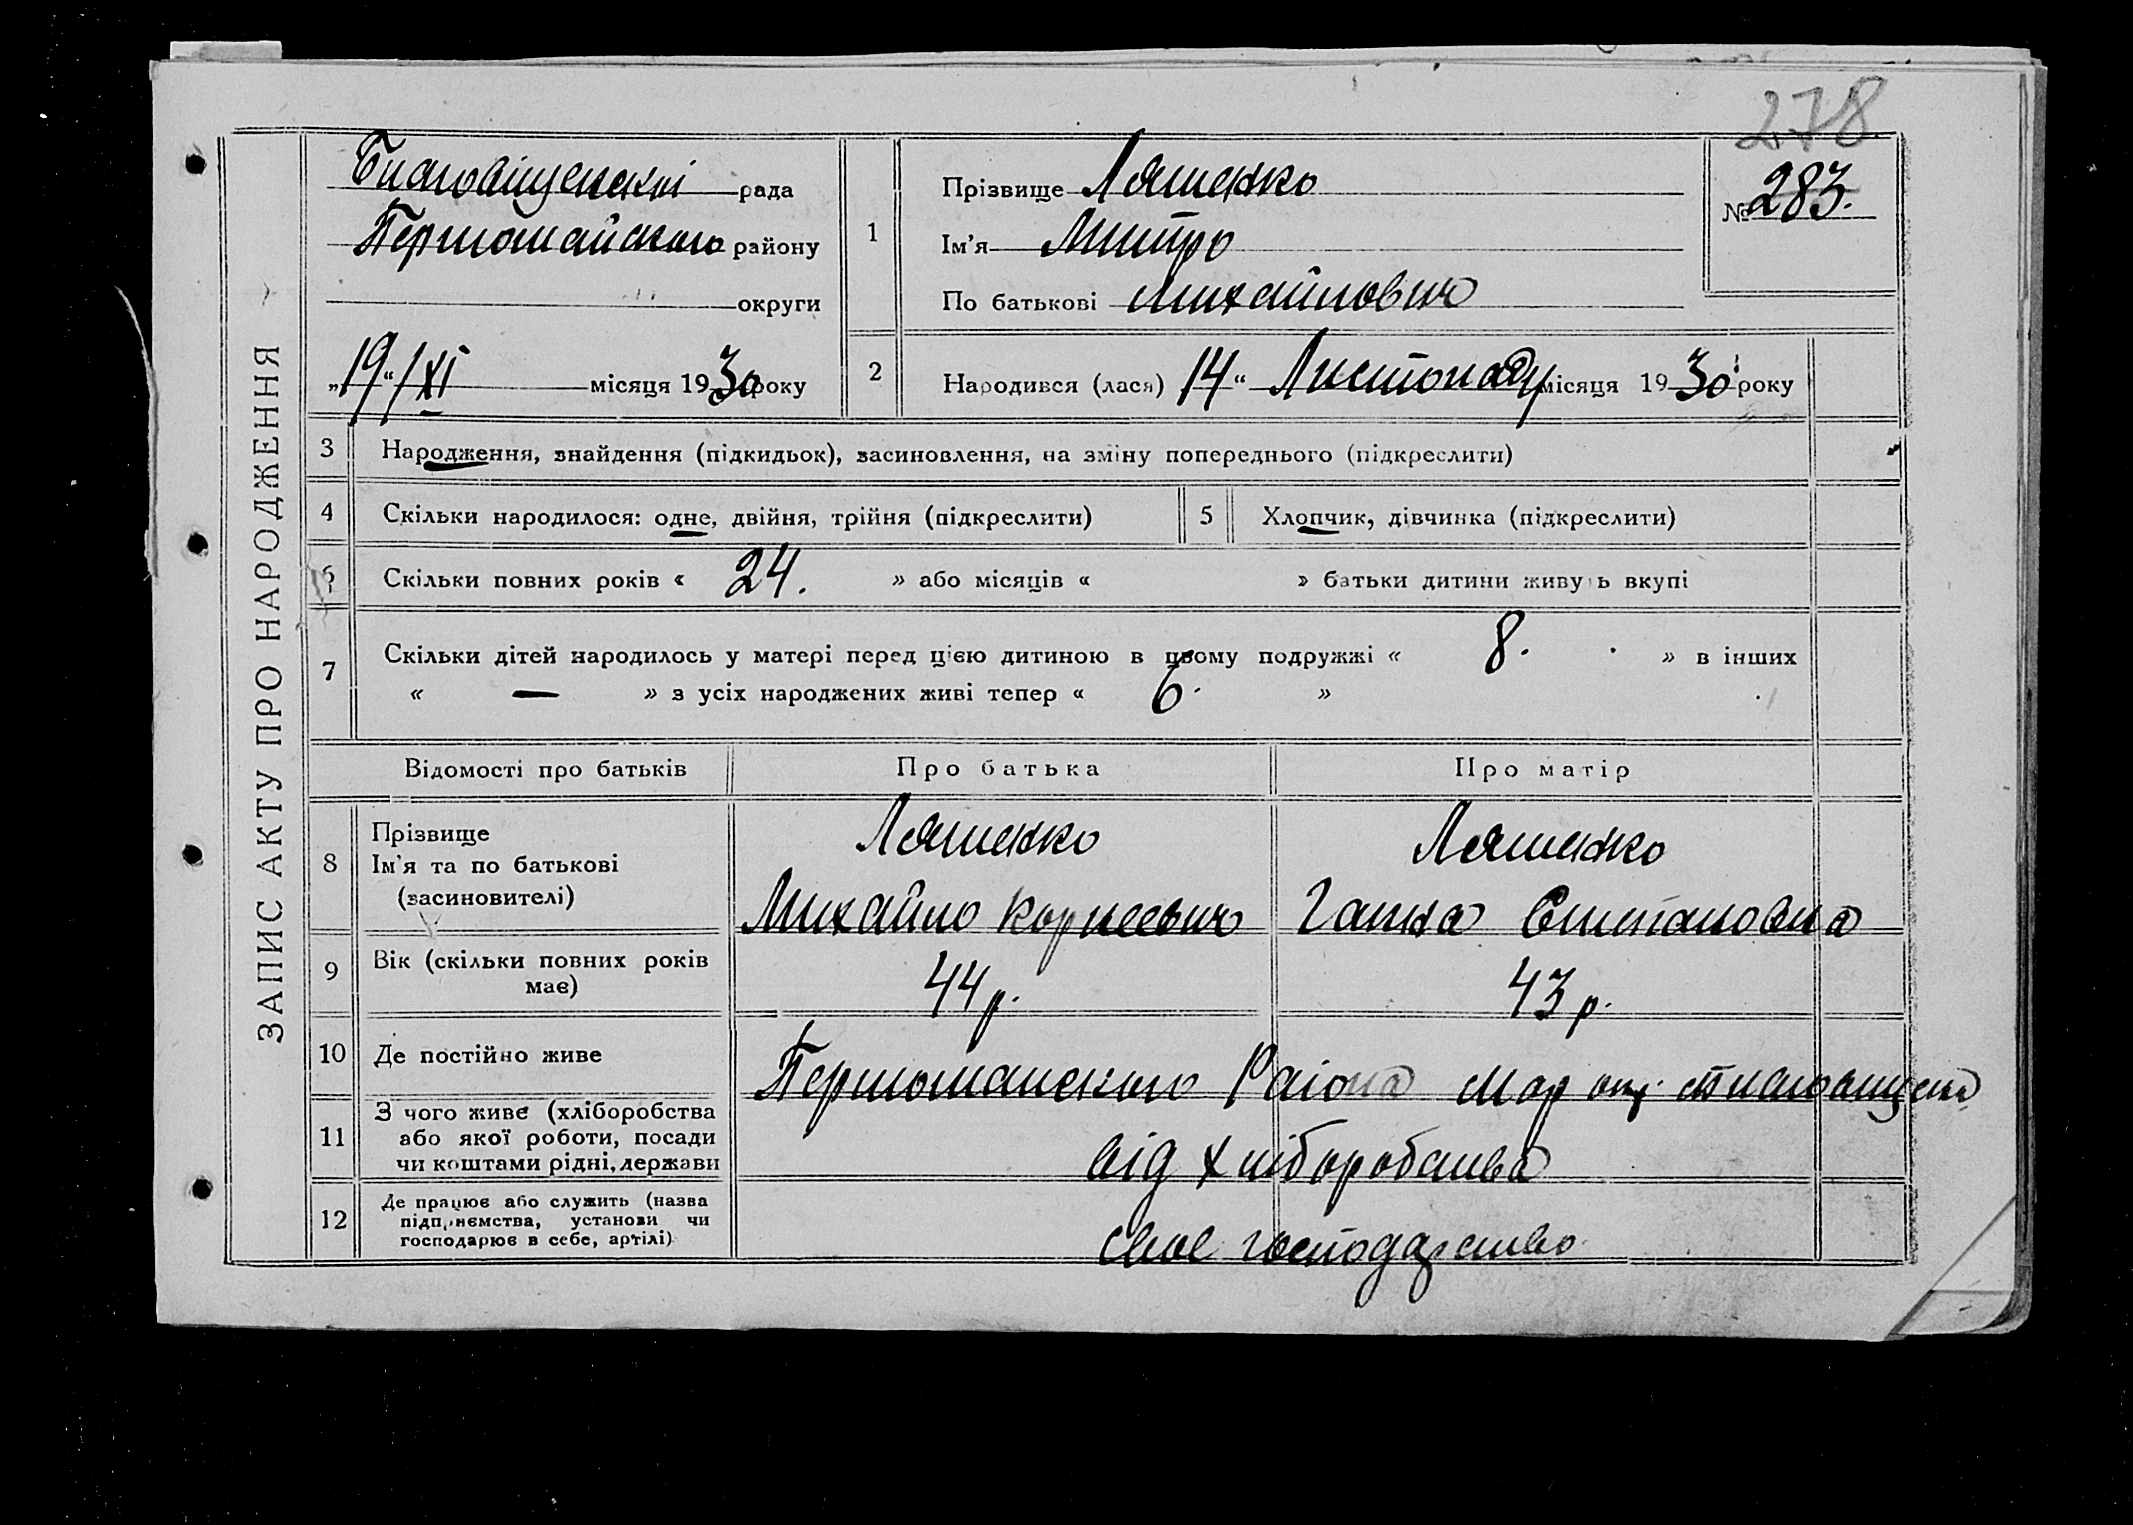 278
ЗАПИС АКТУ ПРО НАРОДЖЕННЯ
Благовіщенскі рада
Першомайського району
округи
„19“/XI місяця 1930 року
1
Прізвище Ляшенко
Ім'я Митро
По батькові Михайлович
№ 283.
2
Народився (лася) 14 “ Листопаду місяця 1930 року
3 Народження, знайдення (підкидьок), засиновлення, на зміну попереднього (підкреслити)
4 Скільки народилося: одне, двійня, трійня (підкреслити) 5 Хлопчик, дівчинка (підкреслити)
6 Скільки повних років « 24. » або місяців « » батьки дитини живуть вкупі
7 Скільки дітей народилось у матері перед цією дитиною в цьому подружжі « 8. » в інших
« — » з усіх народжених живі тепер « 6. »
Відомості про батьків Про батька Про матір
8 Прізвище
Ім'я та по батькові
(засиновителі)
Ляшенко
Михайло Корнеевич
Ляшенко
Ганна Степановна
9 Вік (скільки повних років
має)
44 р.
43 р.
10 Де постійно живе
Першомаиского Раіона Мар окр
11 З чого живе (хліборобства
або якої роботи, посади
чи коштами рідні, держави
від хліборобства
12 Де працює або служить (назва
підприємства, установи чи
господарює в себе, артілі)
свое господарство